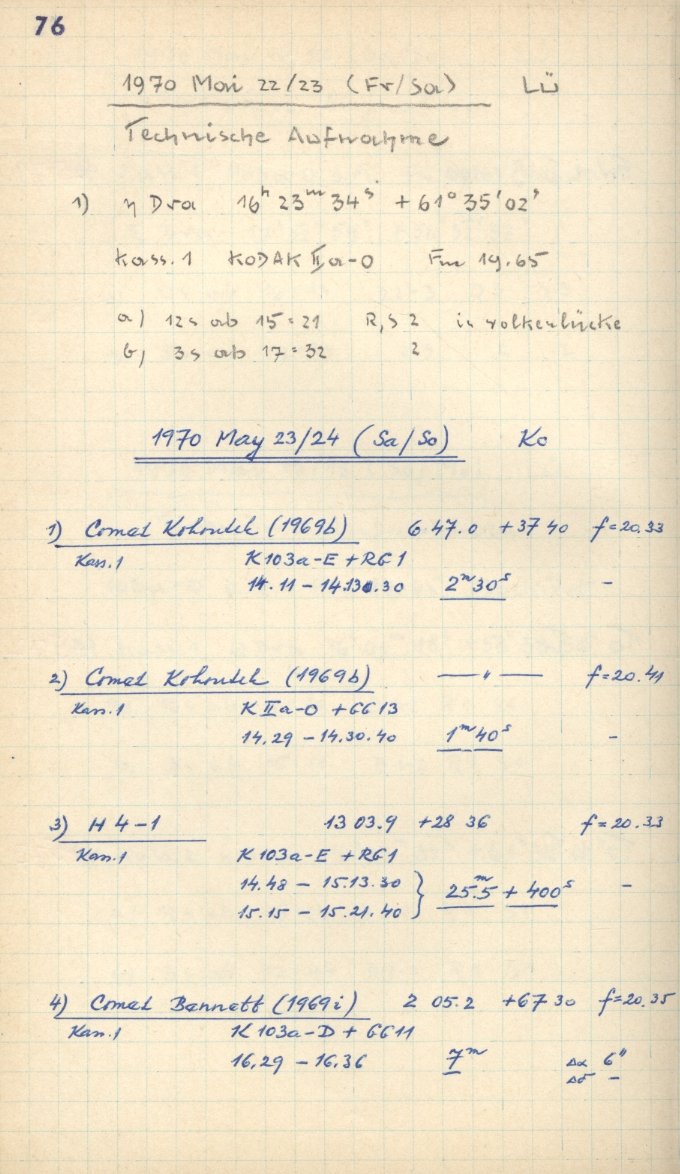 76
1970 Mai 22/23 (Fr/Sa) LÜ
Technische Aufnahme
1) η Dra 16h 23m 34s +61° 35' 02"
Kass. 1 KODAK IIa-O Fm 19.65
a) 12s ab 15:21 R, S 2 in Wolkenlücke
b) 3s ab 17:32 2
1970 May 23/24 (Sa/So) Ko
1) Comet Kohoutek (1969b) 6 47.0 +37 40 f=20.33
Kass.1 K103a-E + RG1
14.11 – 14.13.30 2m 30s –
2) Comet Kohoutek (1969b) — " — f=20.41
Kass.1 K IIa-O + GG13
14.29 – 14.30.40 1m 40s –
3) H 4-1 13 03.9 +28 36 f=20.33
Kass.1 K103a-E + RG1
14.48 – 15.13.30 } 25.5m + 400s –
15.15 – 15.21.40
4) Comet Bennett (1969i) 2 05.2 +67 30 f=20.35
Kass.1 K103a-D + GG11
16.29 – 16.36 7m Δα 6"
Δδ –